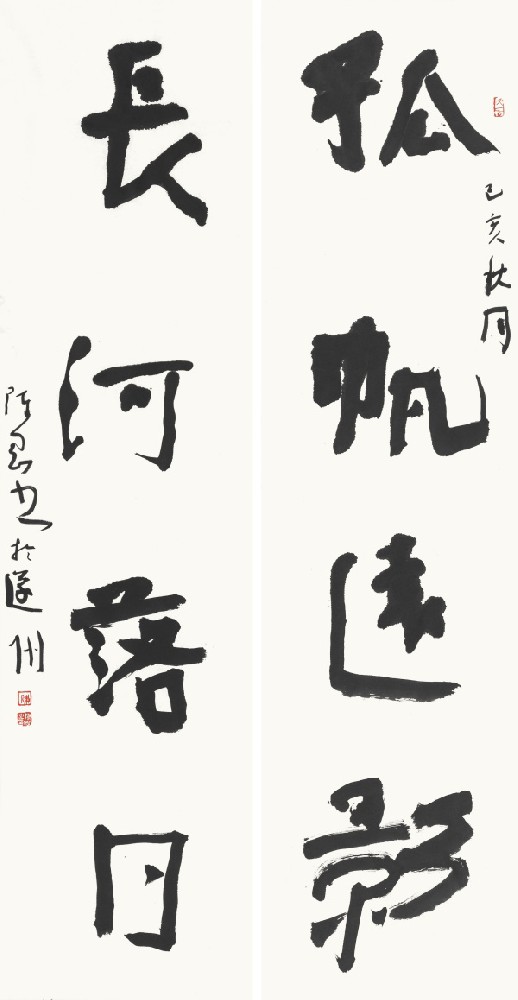 己亥秋月
孤帆遠影
長河落日
陈书於遂州